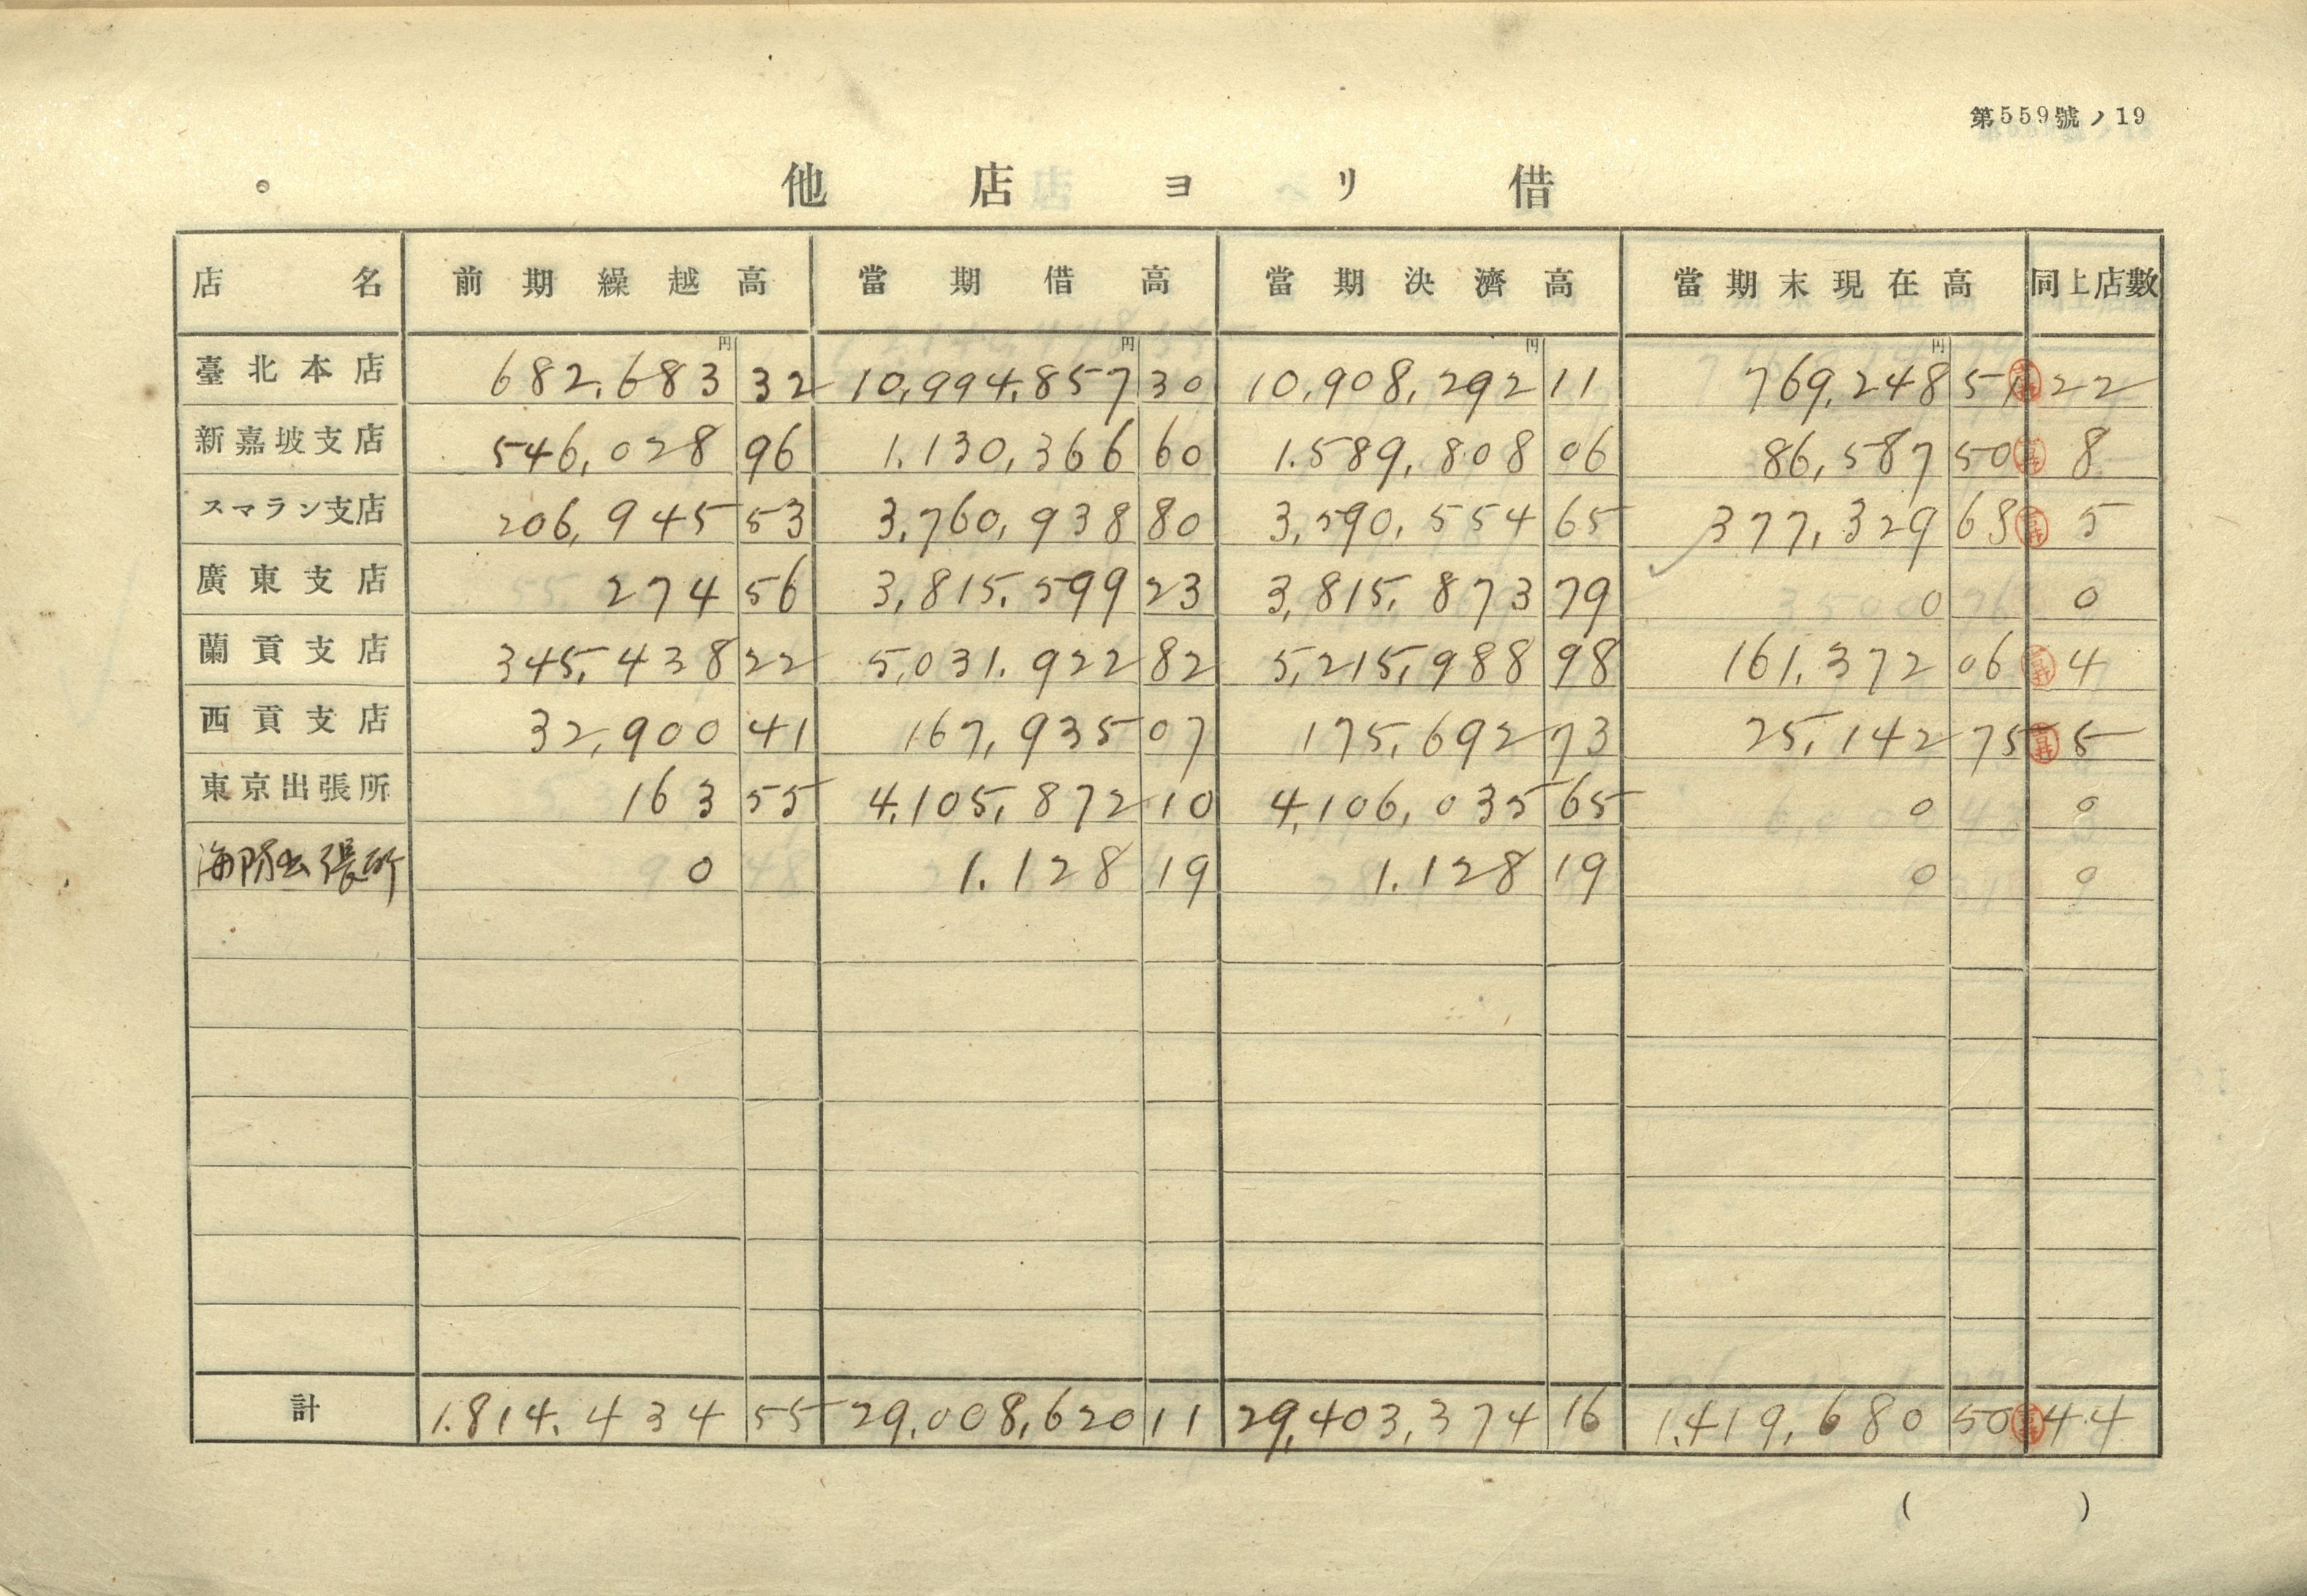 第559號ノ19
他店ヨリ借
店名 前期繰越高 當期借高 當期決濟高 當期末現在高 同上店數
円 円 円 円
臺北本店 682,683 32 10,994,857 30 10,908,292 11 769,248 51 22
新嘉坡支店 546,028 96 1,130,366 60 1,589,808 06 86,587 50 8
スマラン支店 206,945 53 3,760,938 80 3,590,554 65 377,329 68 5
廣東支店 274 56 3,815,599 23 3,815,873 79 0 0
蘭貢支店 345,438 22 5,031,922 82 5,215,988 98 161,372 06 4
西貢支店 32,900 41 167,935 07 175,692 73 25,142 75 5
東京出張所 163 55 4,105,872 10 4,106,035 65 0 0
海防出張所 0 1,128 19 1,128 19 0 0
計 1,814,434 55 29,008,620 11 29,403,374 16 1,419,680 50 44
( )